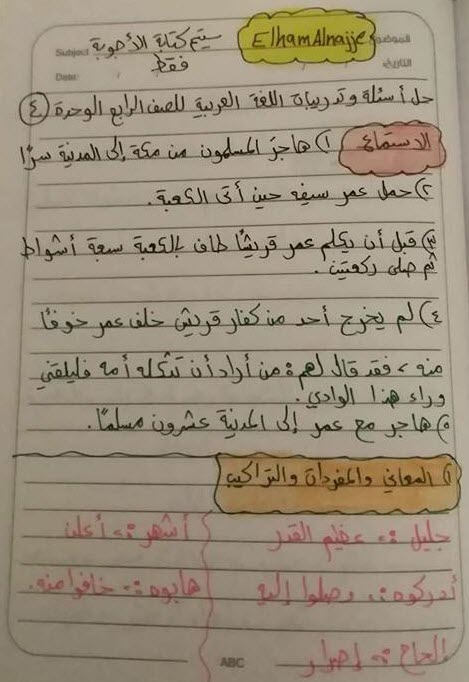 Subject سيتم كتابة الأجوبة Elham Alnajje الموضوع
فقط
Date: / / التاريخ
حل أسئلة وتدريبات اللغة العربية للصف الرابع الوحدة (٤)
الاستماع ١) هاجر المسلمون من مكة إلى المدينة سرًّا
٢) حمل عمر سيفه حين أتى الكعبة.
٣) قبل أن يكلم عمر قريشًا طاف بالكعبة سعة أشواط
ثم صلى ركعتين.
٤) لم يخرج أحد من كفار قريش خلف عمر خوفًا
منه، فقد قال لهم: من أراد أن تثكله أمه فليلقني
وراء هذا الوادي.
٥) هاجر مع عمر إلى المدينة عشرون مسلمًا.
١) المعاني والمفردات والتراكيب
جليل :- عظيم القدر أشهر :- أعلن
أدركوه :- وصلوا إليه هابوه :- خافوا منه.
إلحاح :- إصرار
ABC